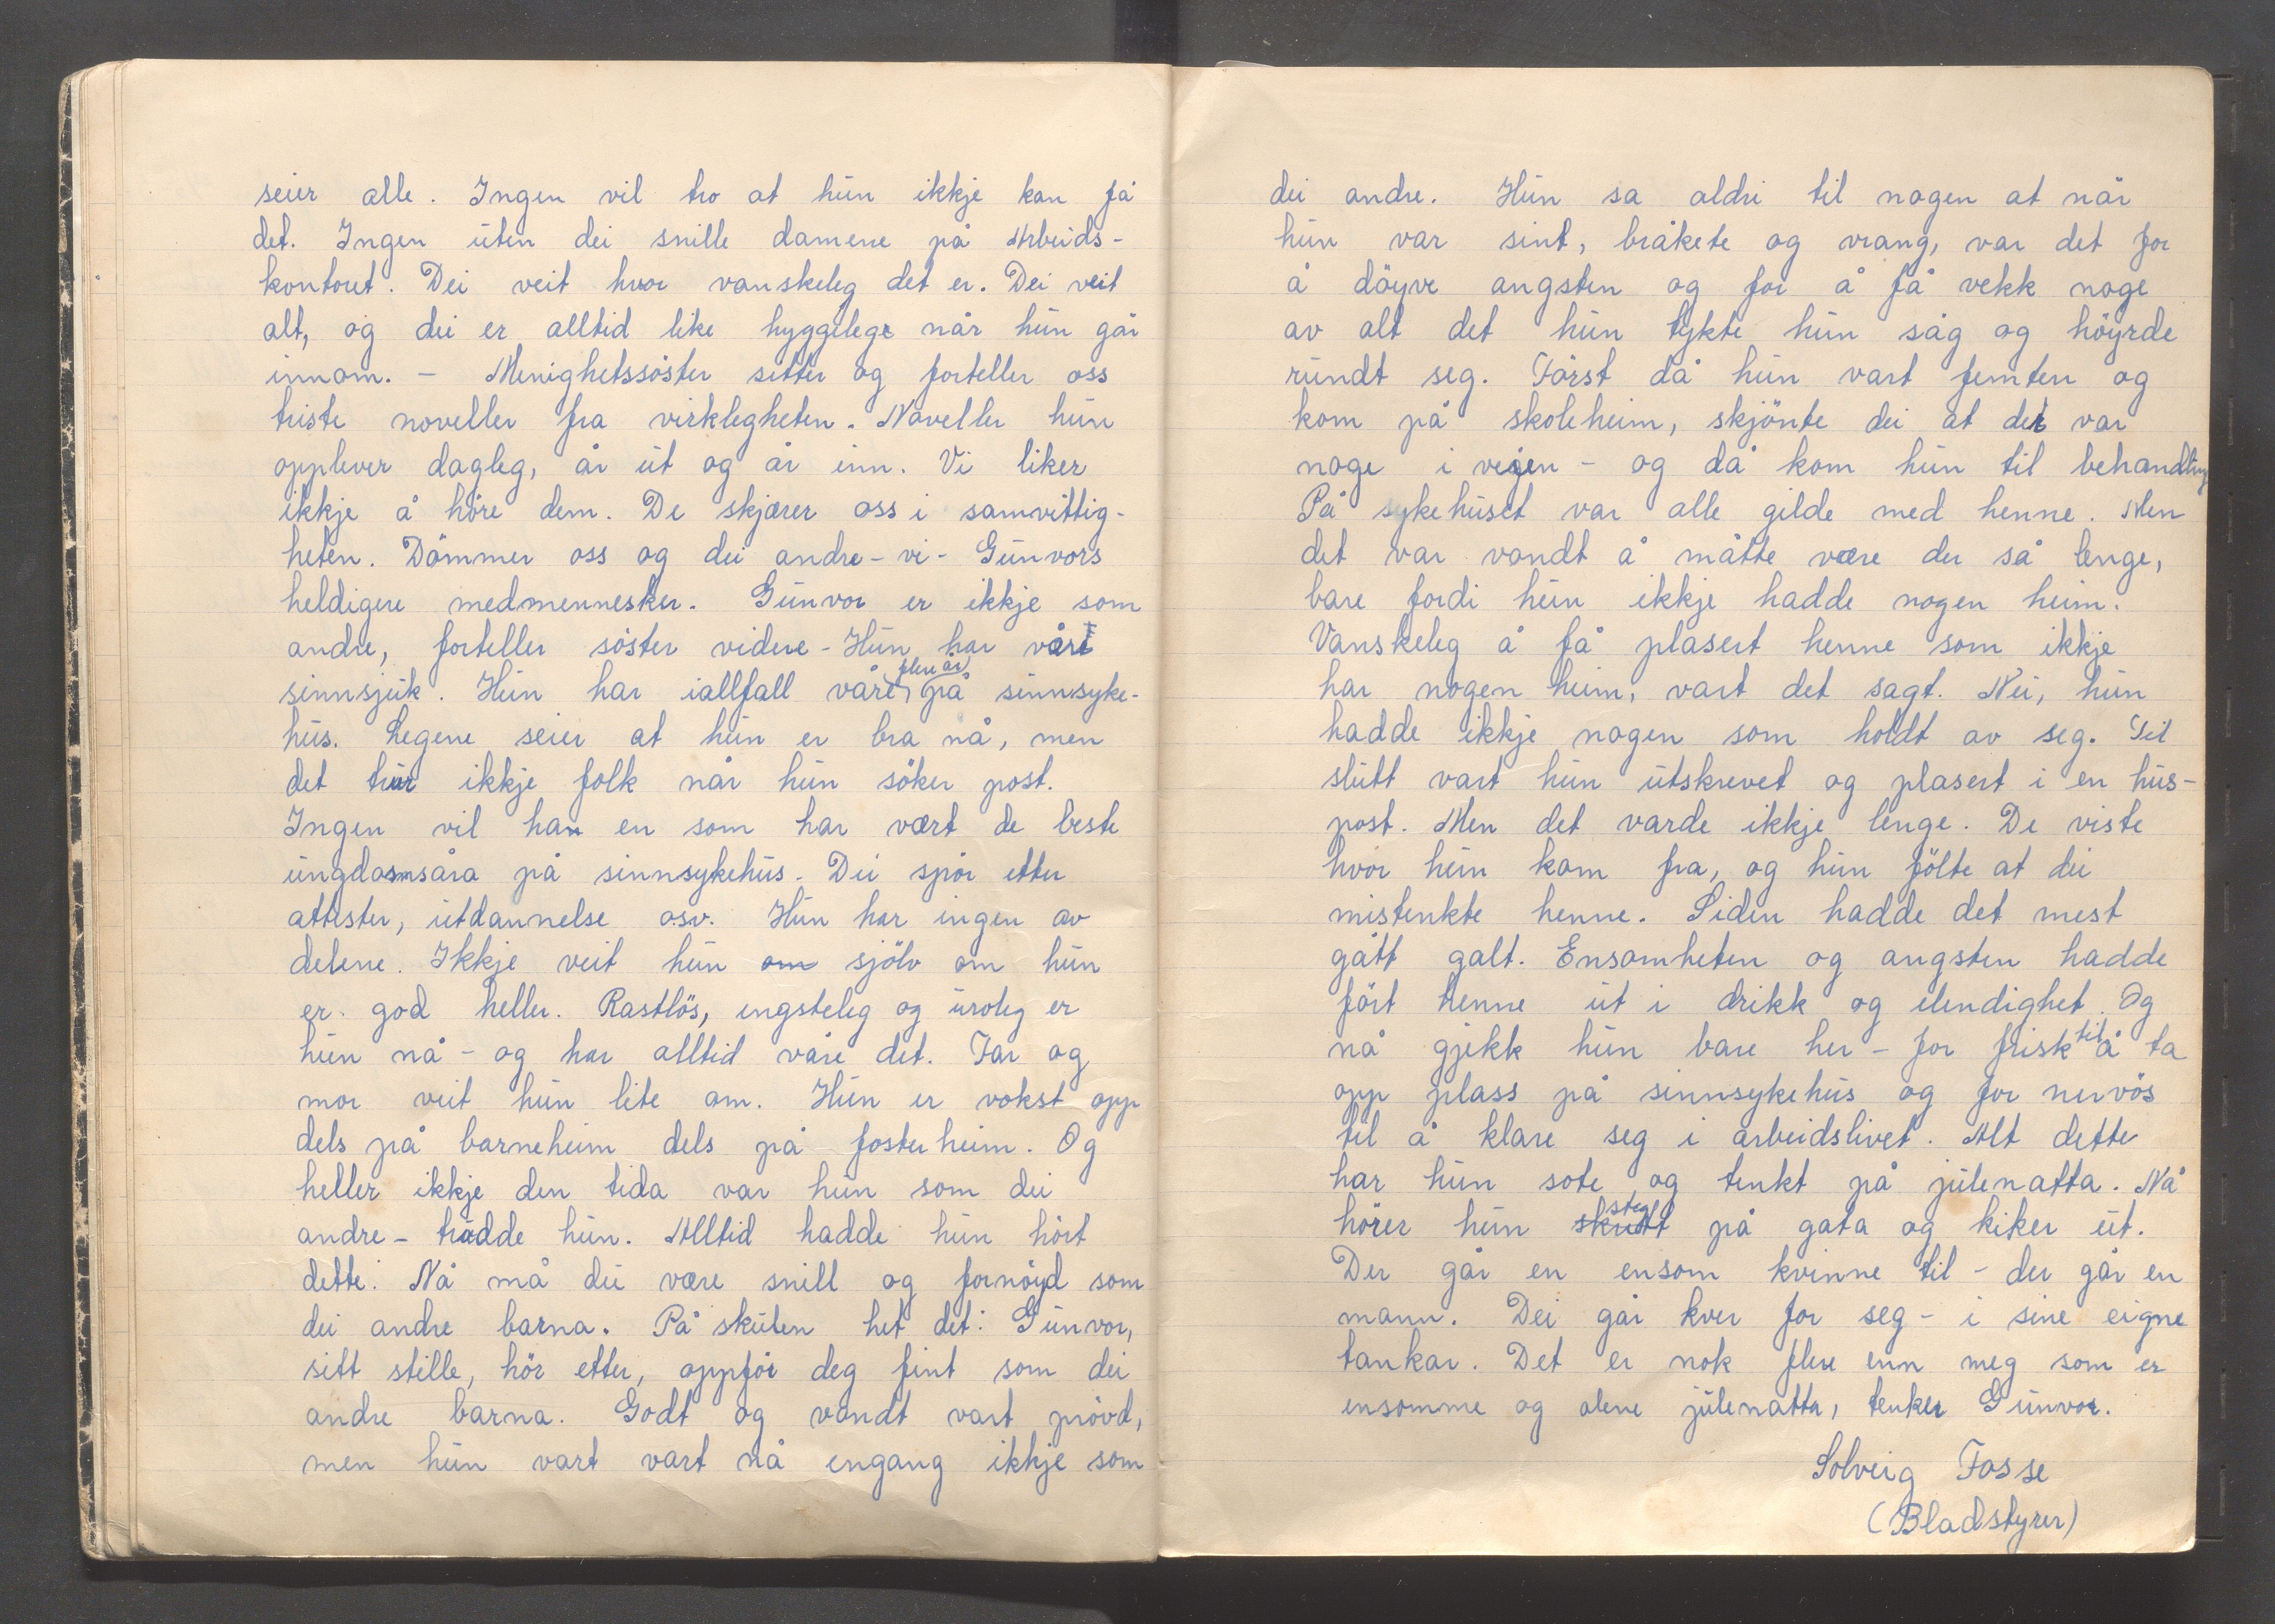 seier alle. Ingen vil tro at hun ikkje kan få
det. Ingen uten dei snille damene på Arbeids-
kontoret. Dei veit hvor vanskeleg det er. Dei veit
alt, og dei er alltid like hyggelege når hun går
innom. - Menighetssöster sitter og forteller oss
triste noveller fra virklegheten. Noveller hun
opplever dagleg, år ut og år inn. Vi liker
ikkje å höre dem. De skjærer oss i samvittig-
heten. Dömmer oss og dei andre - vi - Gunvors
heldigere medmennesker. Gunvor er ikkje som
andre, forteller söster videre - Hun har vårt
sinnsjuk. Hun har iallfall våre flere år på sinnsyke-
hus. Legene seier at hun er bra nå, men
det trur ikkje folk når hun söker post.
Ingen vil han en som har vært de beste
ungdomsåra på sinnsykehus. Dei spör etter
attester, utdannelse osv. Hun har ingen av
delene. Ikkje veit hun om sjölv om hun
er god heller. Rastlös, engsteleg og uroleg er
hun nå - og har alltid våre det. Far og
mor veit hun lite om. Hun er vokst opp
dels på barneheim dels på fosterheim. Og
heller ikkje den tida var hun som dei
andre - trudde hun. Alltid hadde hun hört
dette: Nå må du være snill og fornöyd som
dei andre barna. På skulen het det: Gunvor,
sitt stille, hör etter, oppför deg fint som dei
andre barna. Godt og vondt vart prövd,
men hun vart vart nå engang ikkje som
dei andre. Hun sa aldri til nogen at når
hun var sint, bråkete og vrang, var det for
å döyve angsten og for å få vekk noge
av alt det hun tykte hun såg og höyrde
rundt seg. Först då hun vart femten og
kom på skoleheim, skjönte dei at det var
noge i veien - og då kom hun til behandling
På sykehuset var alle gilde med henne. Men
det var vondt å måtte være der så lenge,
bare fordi hun ikkje hadde nogen heim.
Vanskeleg å få plasert henne som ikkje
har nogen heim, vart det sagt. Nei, hun
hadde ikkje nogen som holdt av seg. Til
slutt vart hun utskrevet og plasert i en hus-
post. Men det varde ikkje lenge. De viste
hvor hun kom fra, og hun fölte at dei
mistenkte henne. Siden hadde det mest
gått galt. Ensomheten og angsten hadde
fört henne ut i drikk og elendighet. Og
nå gjekk hun bare her - for frisk til å ta
opp plass på sinnsykehus og for nervös
til å klare seg i arbeidslivet. Alt dette
har hun sote og tenkt på julenatta. Nå
hörer hun skritt steg på gata og kiker ut.
Der går en ensom kvinne til - der går en
mann. Dei går kver for seg - i sine eigne
tankar. Det er nok flere enn meg som er
ensomme og alene julenatta, tenker Gunvor.
Solveig Fosse
(Bladstyrer)